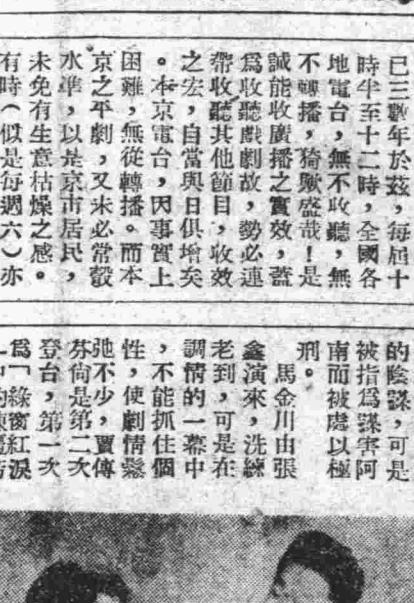 已三數年於茲，每屆十
時半至十二時，全國各
地電台，無不收聽，無
不轉播，猗歟盛哉！是
誠能收廣播之實效，蓋
爲收聽戲劇故，勢必連
帶收聽其他節目，收效
之宏，自當與日俱增矣
。本京電台，因事實上
困難，無從轉播。而本
京之平劇，又未必常彀
水準，以是京市居民，
未免有生意枯燥之感。
有時（似是每週六）亦
的陰謀，可是
被指爲謀害阿
南而被處以極
刑。
馬金川由張
鑫演來，洗練
老到，可是在
調情的一幕中
，不能抓住個
性，使劇情鬆
弛不少，賈傳
芬尙是第二次
登台，第一次
爲「綠窗紅淚